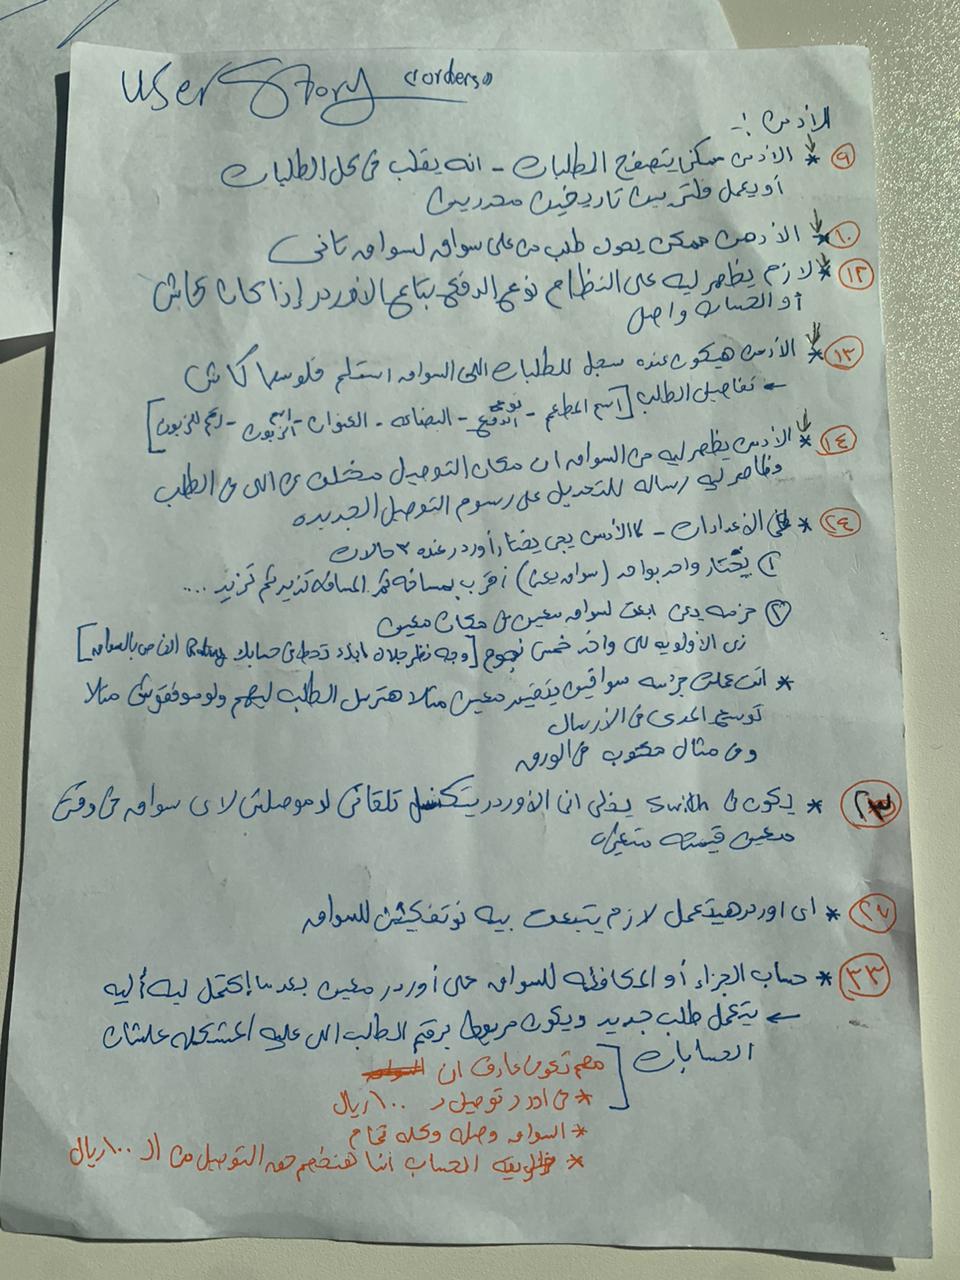 User Story "orders"
الأدمن :-
٩ * الأدمن ممكن يتصفح الطلبات - انه يقلب في كل الطلبات
أو يعمل فلتر بين تاريخين محددين
١٠ * الأدمن ممكن يحول طلب من على سواق لسواق تاني
١٢ * لازم يظهر ليه على النظام نوع الدفع بتاع الأوردر إذا كان كاش
أو الحساب واصل
١٣ * الأدمن هيكون عنده سجل للطلبات اللي السواق استلم فلوسها كاش
← تفاصيل الطلب [اسم المطعم - نوع الدفع - البضاعه - العنوان - اسم الزبون - رقم الزبون]
١٤ * الأدمن يظهر ليه من السواق ان مكان التوصيل مختلف عن اللي في الطلب
وظاهر ليه رساله للتعديل على رسوم التوصيل الجديده
٢٤ * في الاعدادات - الأدمن يجي يختار أوردر عنده ٣ حالات
١ يختار واحد بواحد (سواق يعني) أقرب بمسافه ثم المسافه تزيد ثم تزيد ....
٢ حزمه يعني ابعت لسواق معين في مكان معين
زي الأولويه للي واخد خمس نجوم [وجه نظر ابدء تحط في حسابك Rating الخاص بالسواق]
* انت عملت حزمه سواقين معين مثلا هترسل الطلب ليهم ولو موفقوش مثلا
توسع المدى في الأرسال
وفي مثال مكتوب في الورق
٢٣ * يكون في Swith يخلي ان الأوردر يتكنسل تلقائي لو موصلش لاي سواق في وقت
معين قيمته متغيره
٢٧ * اى اوردر هيتعمل لازم يتبعت بيه نوتفكيشن للسواق
٣٣ * حساب الجزاء أو المكافئه للسواق على أوردر معين بعد ما إكتمل ليه أليه
← يتعمل طلب جديد ويكون مربوط برقم الطلب اللي عليه المشكله علشان
الحسابات
مهم تكون عارف ان
* في اوردر توصيل بـ ١٠٠ ريال
* السواق وصله وكله تمام
* طريقه الحساب أننا هنخصم حق التوصيل من الـ ١٠٠ ريال